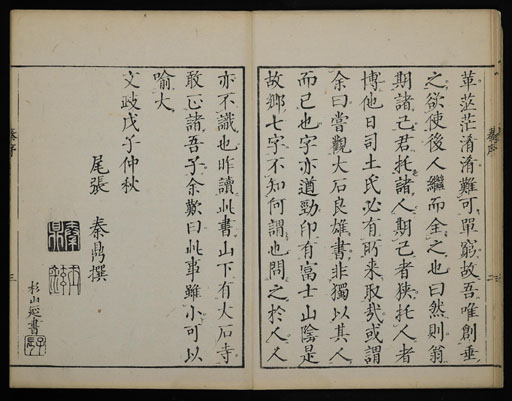 茫茫淆淆難可單窮故吾唯創垂
之欲使後人繼而全之也曰然則翁
期諸己君托諸人期己者狹托人者
博他日司土氏必有所来取哉或謂
余曰嘗觀大石良雄書非獨以其人
而已也字亦遒勁印有冨士山陰是
故鄉七字不知何謂也問之於人人
亦不識也昨讀此書山下有大石寺
敢正諸吾子余歎曰此事雖小可以
喻大
文政戊子仲秋
尾張 秦鼎撰
杉山 書
序
三